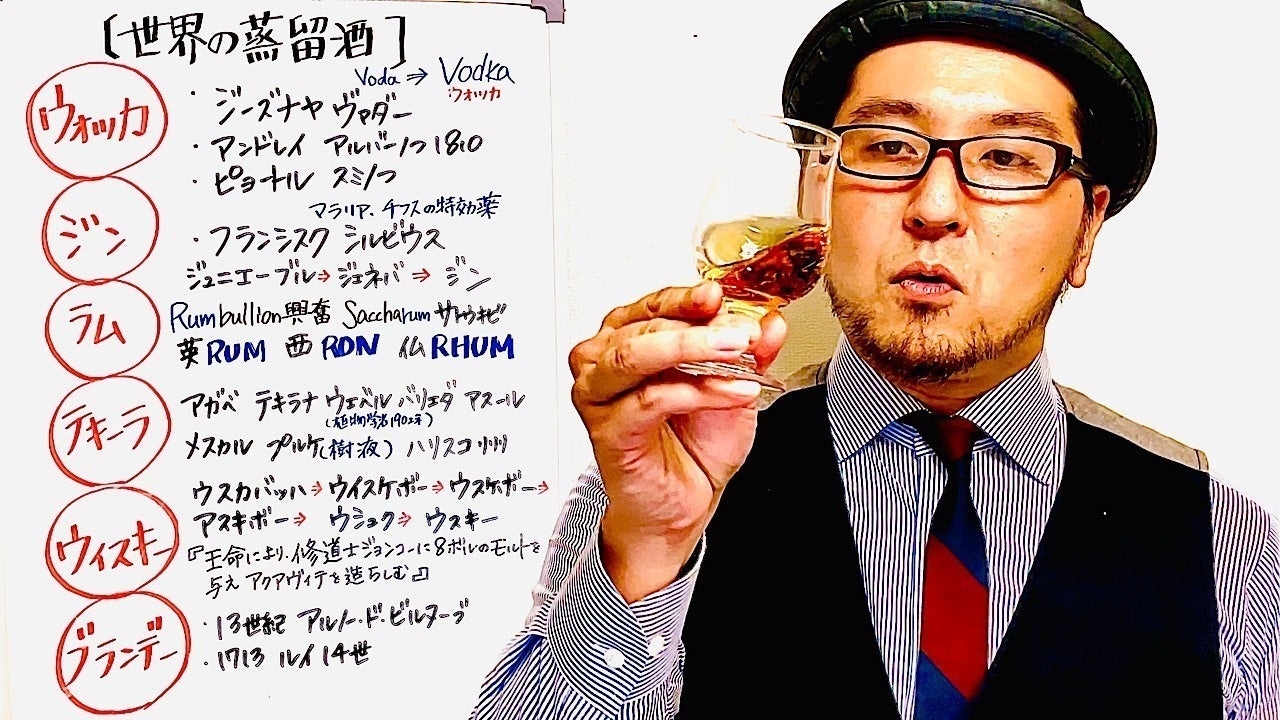 [世界の蒸留酒]
Voda ⇒ Vodka
ウォッカ
ウォッカ
・ジーズナヤ ヴァダー
・アンドレイ アルバーノフ 1810
・ピョートル スミノフ
ジン
マラリア、チフスの特効薬
・フランシスク シルビウス
ジュニエーブル→ジェネバ→ジン
ラム
Rumbullion興奮 Saccharum サトウキビ
英RUM 西RON 仏RHUM
テキーラ
アガベ テキラナ ウェベル バリエダ アスール
(植物学者1902年)
メスカル プルケ(樹液) ハリスコ
ウィスキー
ウスカバッハ→ウイスケボー→ウスケボー→
アスキボー→ ウシュク→ ウスキー
『王命により、修道士ジョンコーに8ボルのモルトを
与え アクアヴィテを造らしむ』
ブランデー
・13世紀 アルノー・ド・ビルヌーブ
・1713 ルイ14世